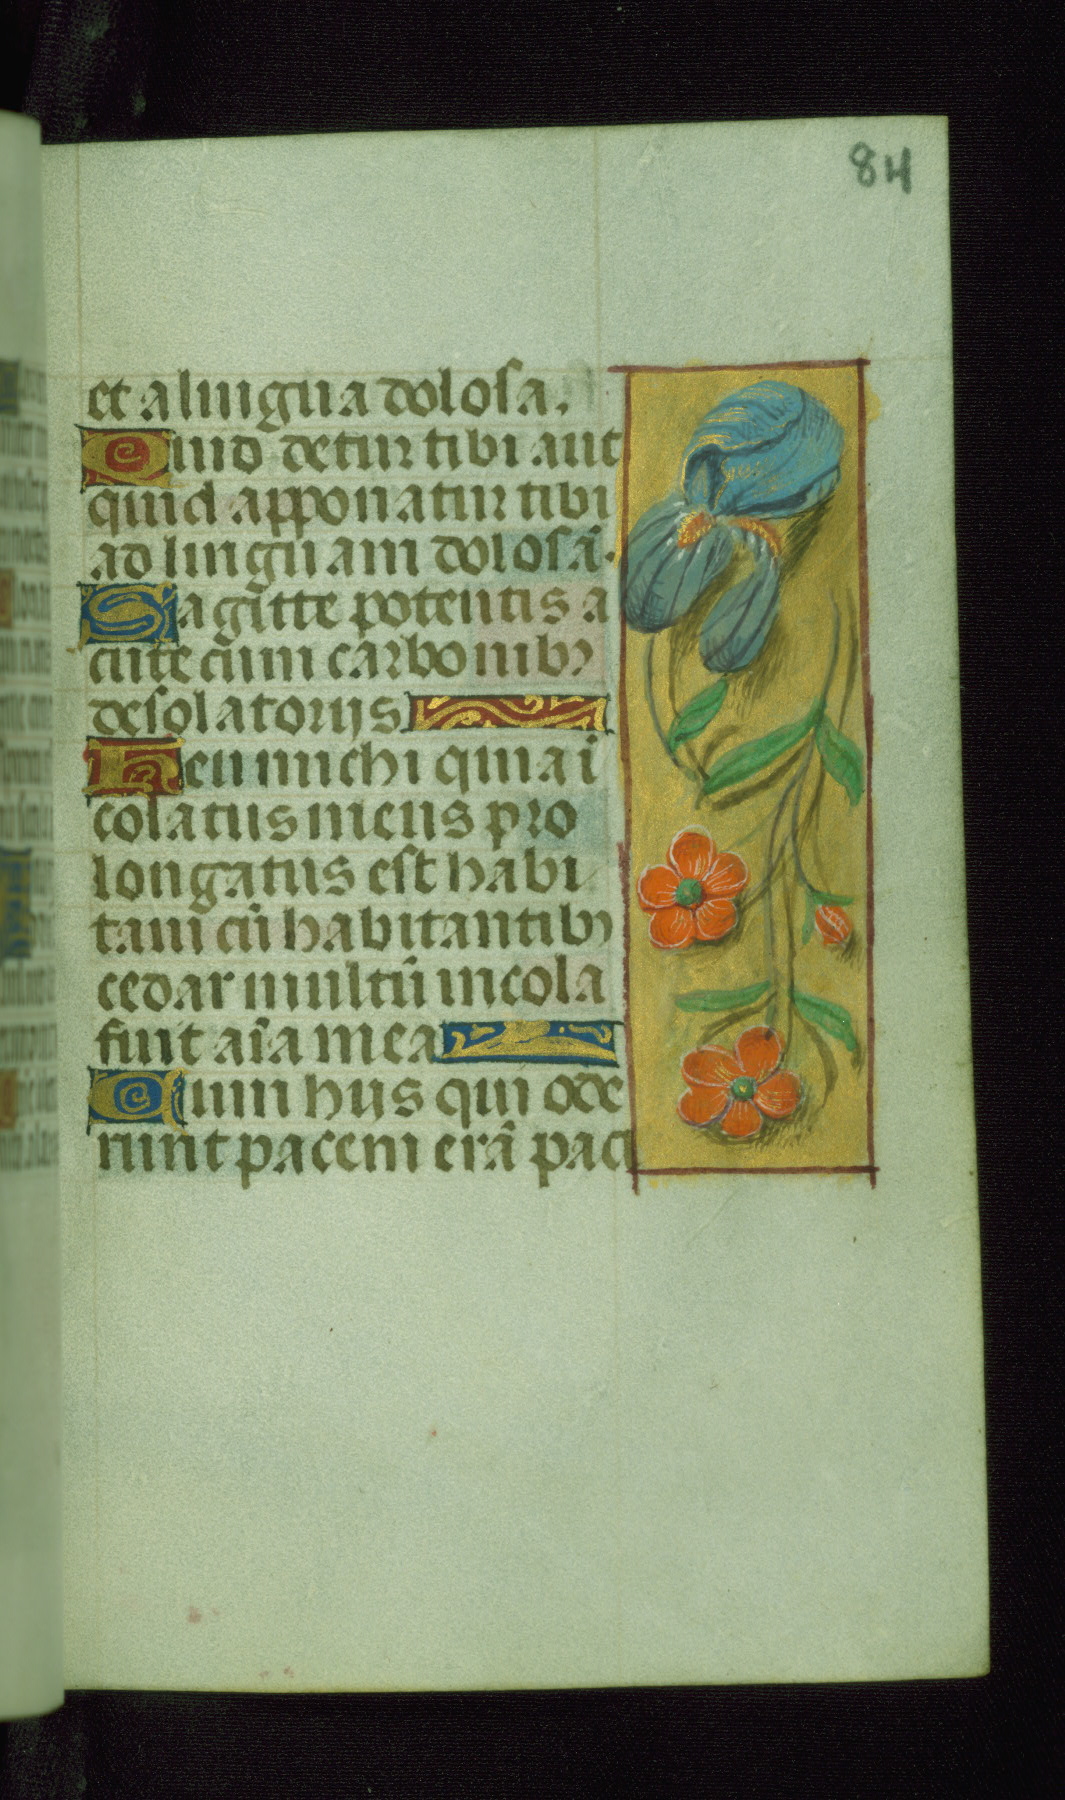 84
et a lingua dolosa.
Quid detur tibi aut
quid apponatur tibi
ad linguam dolosā.
Sagitte potentis a
cute cum carbonibꝰ
desolatorijs
Heu michi quia ī
colatus meus pro
longatus est habi
taui cū habitantibꝰ
cedar multū incola
fuit aīa mea
Cum hijs qui ode
runt pacem erā paci